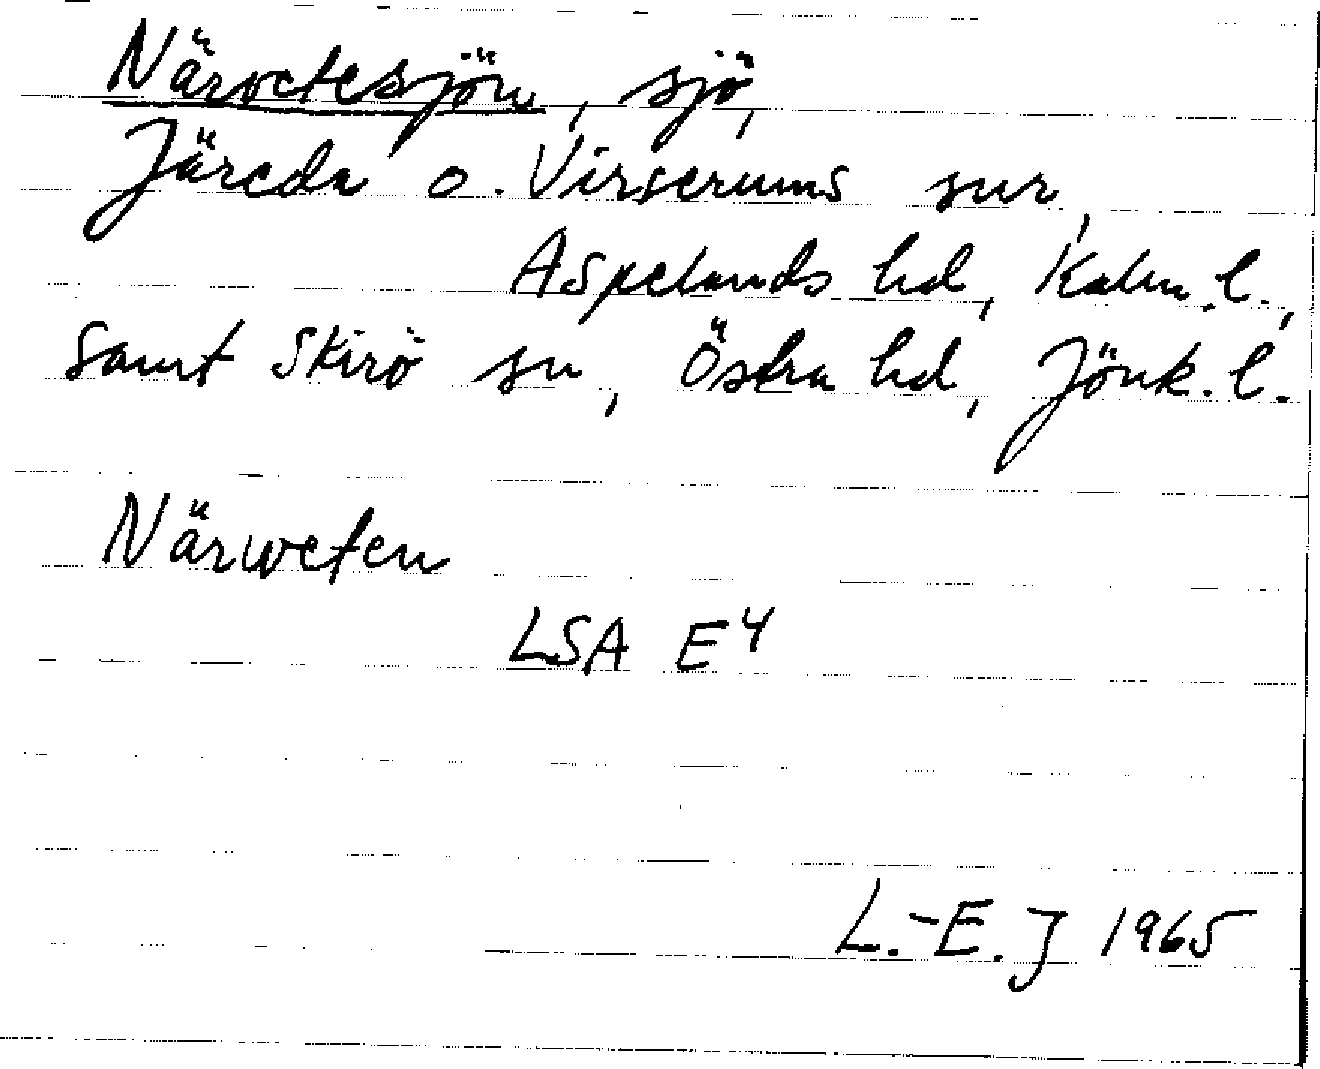 Närvetesjön, sjö,
Järeda o. Virserums snr,
Aspelands hd, Kalm. l.,
samt Skirö sn, Östra hd, Jönk. l.
Närweten
LSA E4
L.-E. J 1965